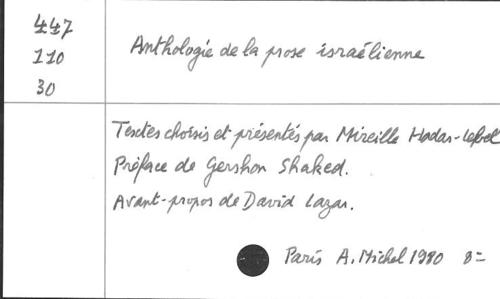 447
110
30
Anthologie de la prose israélienne
Textes choisis et présentés par Mireille Hadas-Lebel
Préface de Gershon Shaked.
Avant-propos de David Lazar.
Paris A. Michel 1980 8=